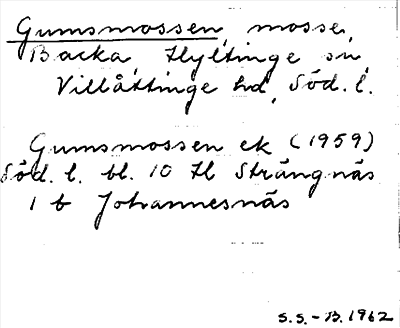 Gumsmossen, mosse,
Backa, Hyltinge sn,
Villåttinge hd, Söd. l.
Gumsmossen ek (1959)
Söd. l. bl. 10 H Strängnäs
1 b Johannesnäs
S.S. - B. 1962